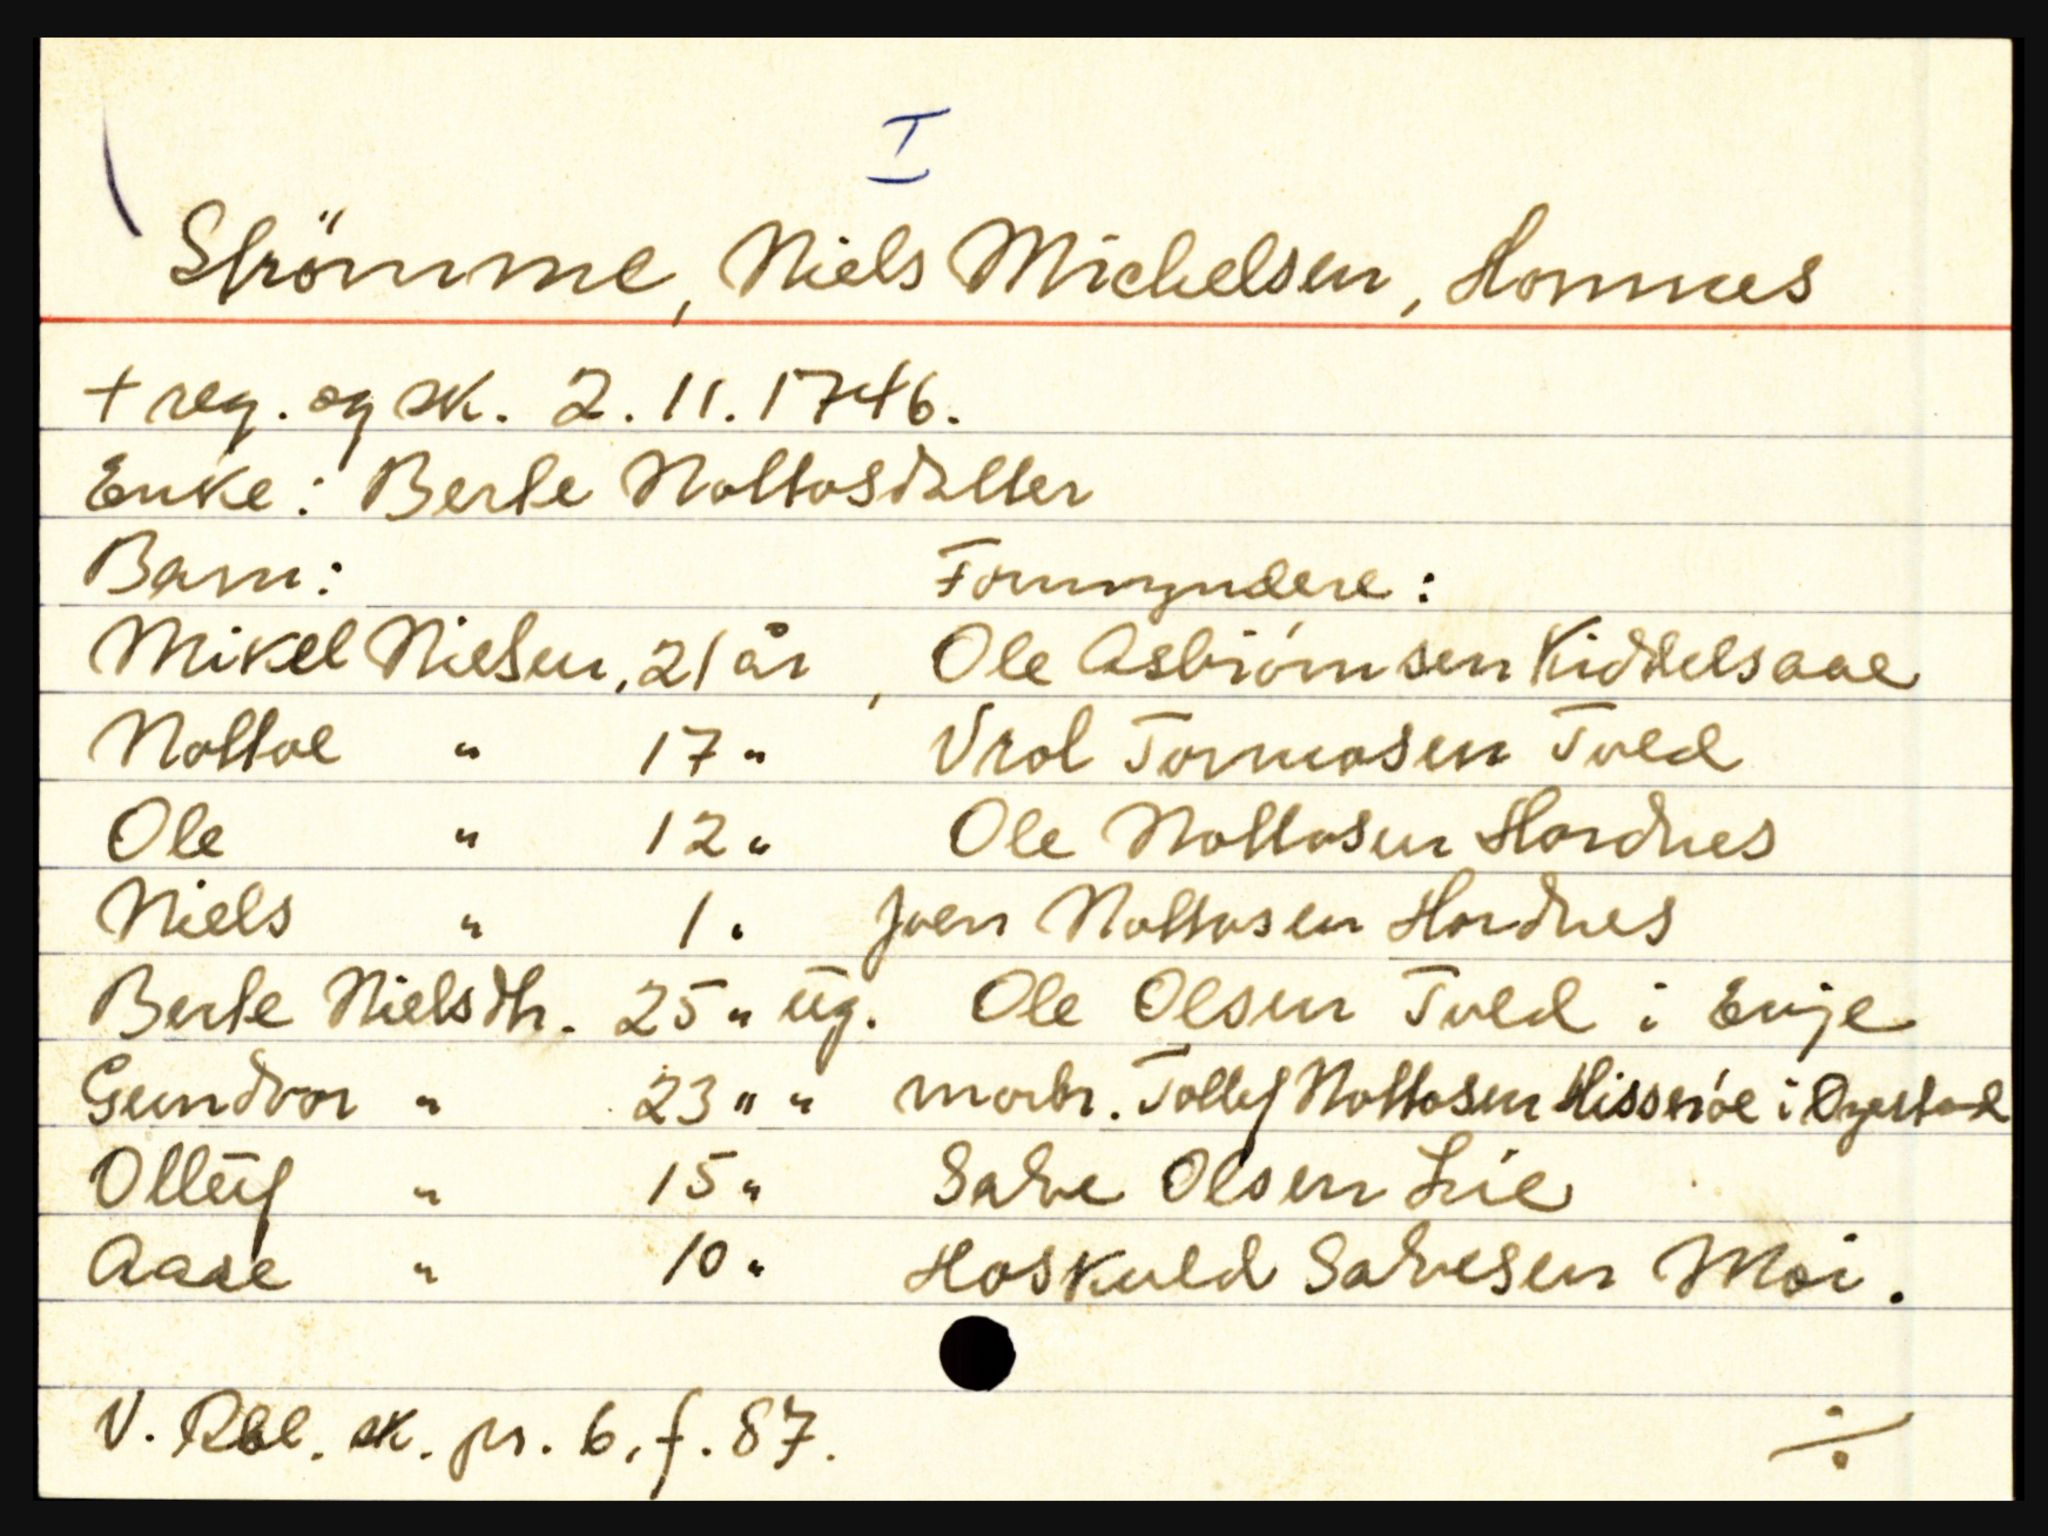 I
Strömme, Niels Michelsen, Hornnes
+ reg. og sk. 2. 11. 1746.
Enke: Berte Nottosdatter
Barn: Formyndere:
Mikel Nielsen, 21 år, Ole Asbiørnsen Kiddelsaae
Nottoe " 17 " Vrol Tormosen Tved
Ole " 12 " Ole Nottosen Hordnes
Niels " 1 " Joen Nottosen Hordnes
Berte Nielsdtr. 25 " ug. Ole Olsen Tved i Evje
Gundvor " 23 " " morbr. Tollef Nottosen Hisserøe i Øyestad
Olluf " 15 " Salve Olsen Lie
Aase " 10 " Hoskuld Salvesen Moi.
V. Rbl. sk. pr. 6, f. 87. ÷